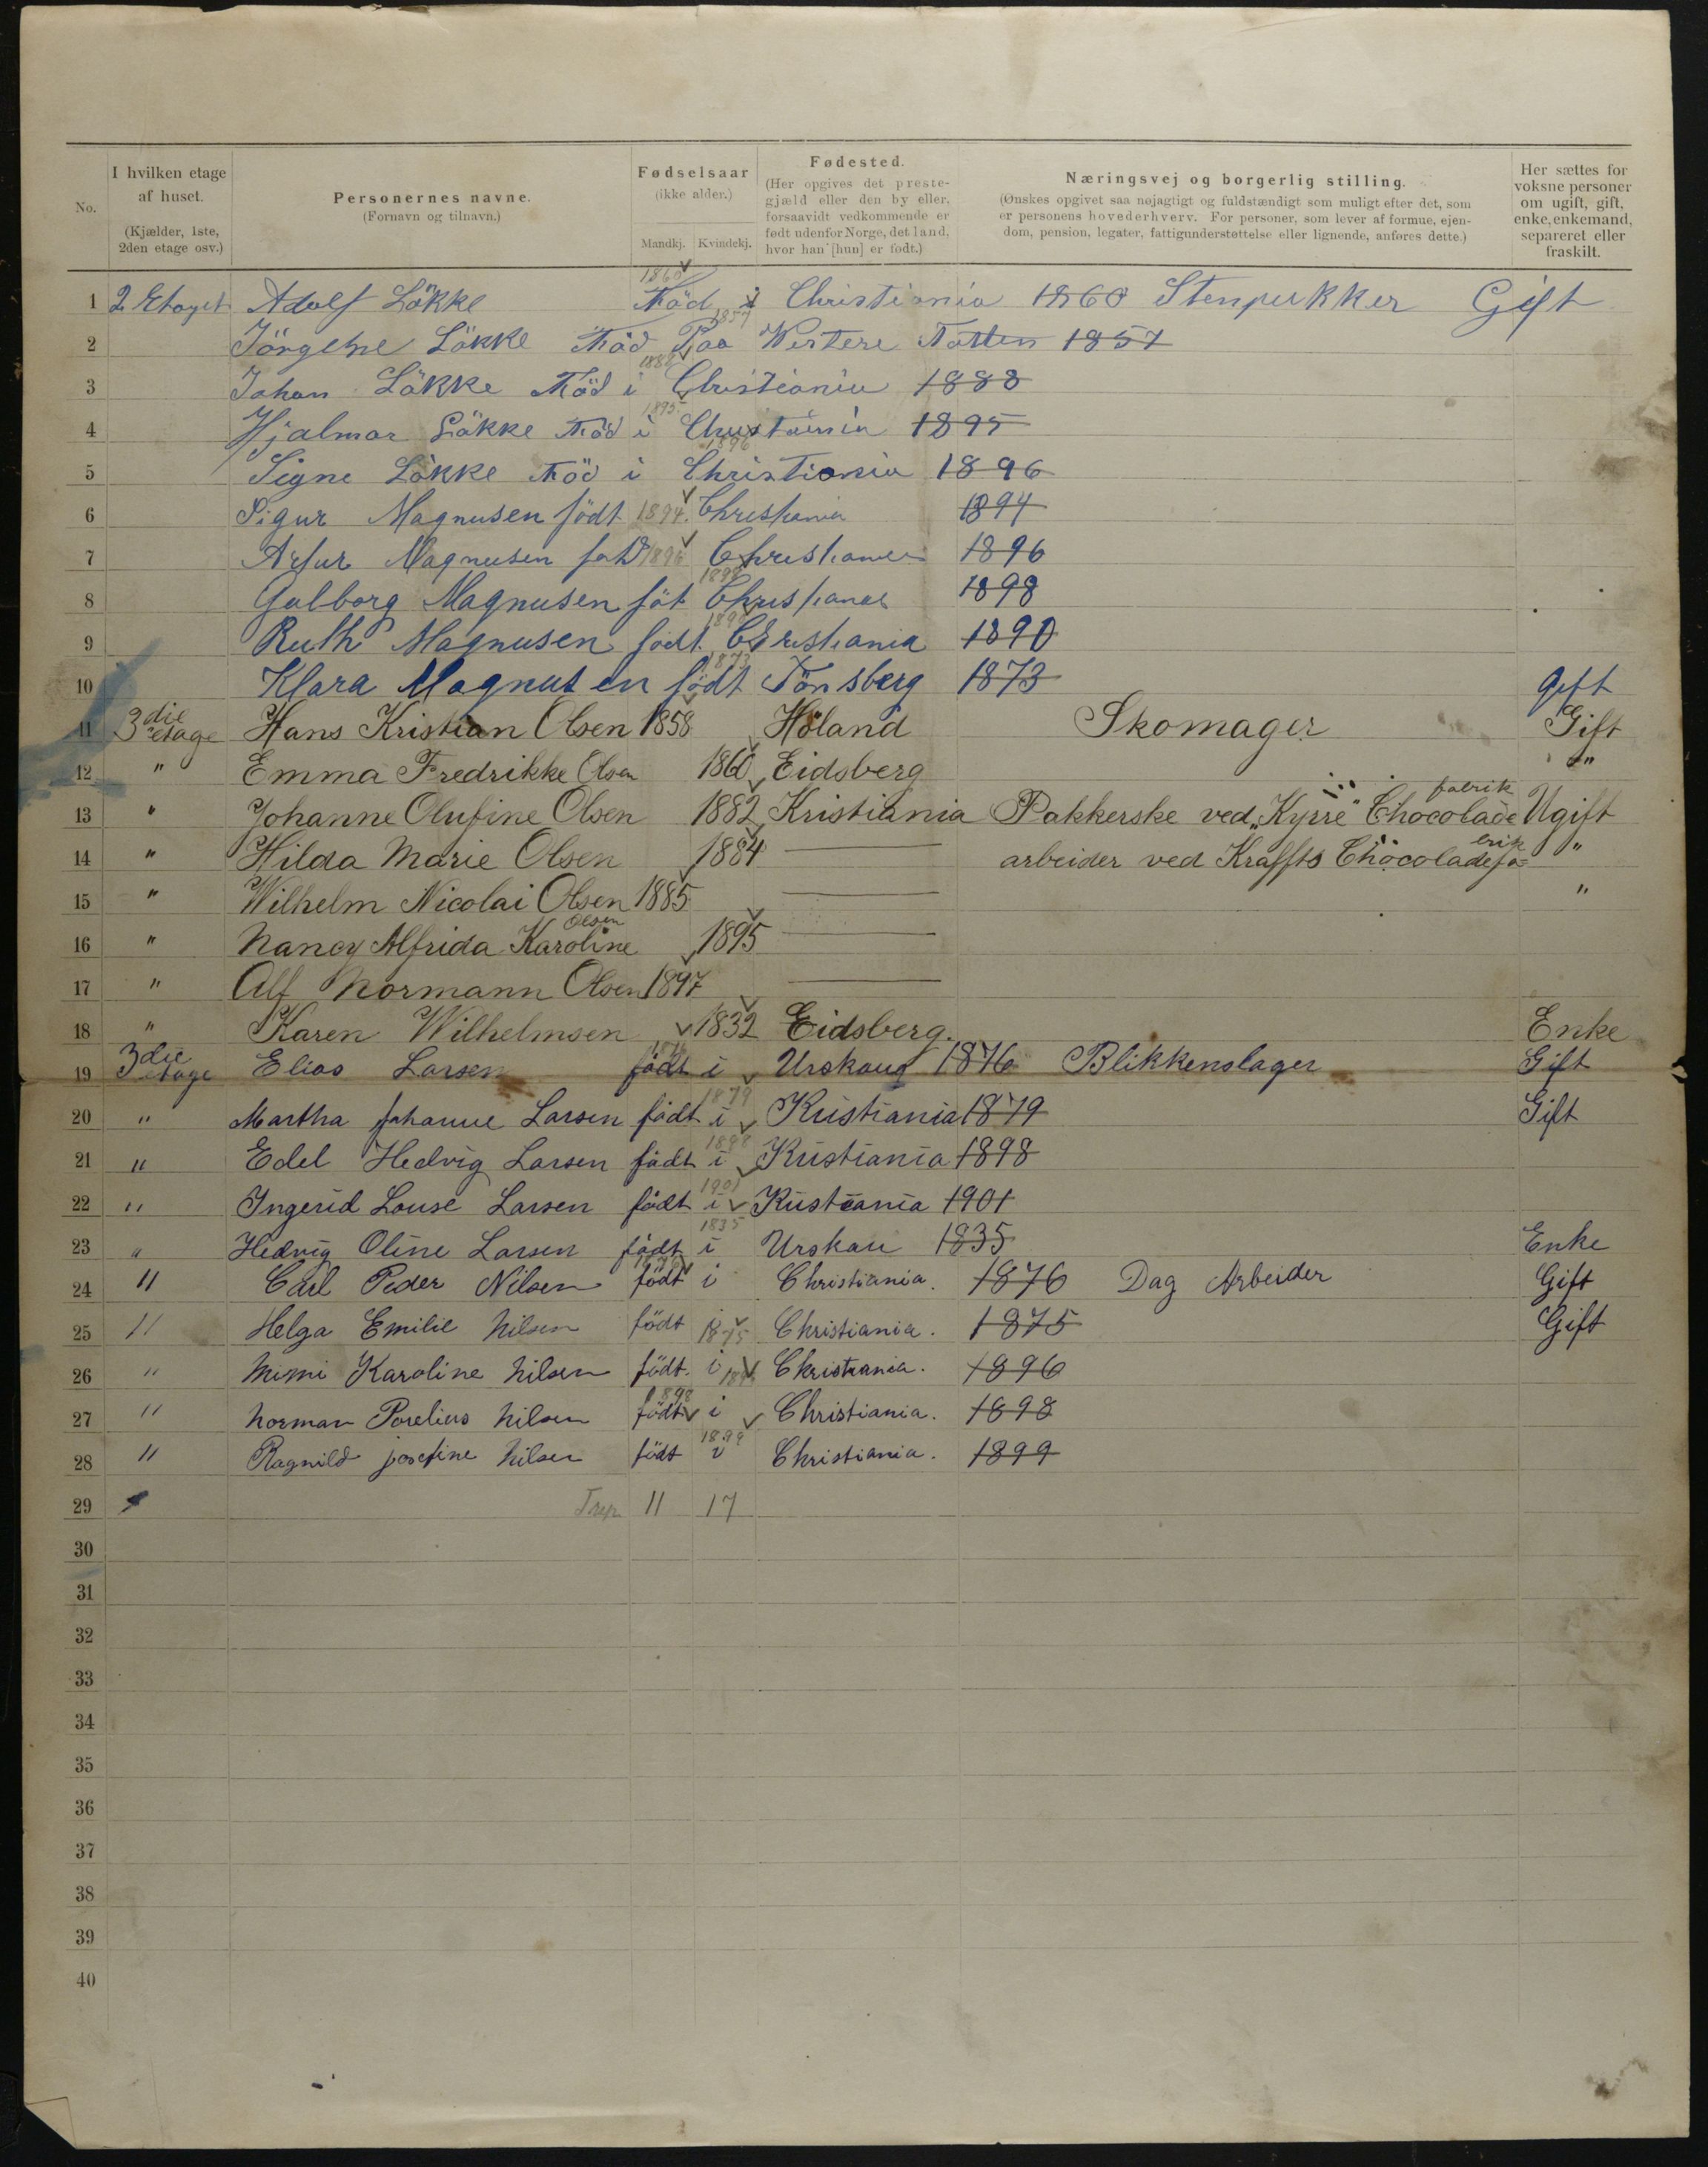 No.
I hvilken etage
af huset.
(Kjælder, 1ste,
2den etage osv.)
Personernes navne.
(Fornavn og tilnavn.)
Fødselsaar
(ikke alder.)
Mandkj. Kvindekj.
Fødested.
(Her opgives det preste-
gjæld eller den by eller,
forsaavidt vedkommende er
født udenfor Norge, det land,
hvor han [hun] er født.)
Næringsvej og borgerlig stilling.
(Ønskes opgivet saa nøjagtigt og fuldstændigt som muligt efter det, som
er personens hovederhverv. For personer, som lever af formue, ejen-
dom, pension, legater, fattigunderstøttelse eller lignende, anføres dette.)
Her sættes for
voksne personer
om ugift, gift,
enke, enkemand,
separeret eller
fraskilt.
1 2 Etaget Adolf Lökke Föd i 1860 Christiania 1860 Stenpukker Gift
2 Jörgene Lökke Föd Paa 1857 Westere Totten 1857
3 Johan Lökke Föd i 1888 Christiania 1888
4 Hjalmar Lökke Föd i 1895 Christiania 1895
5 Signe Lökke Föd i 1896 Christiania 1896
6 Sigur Magnusen födt 1894 Christiania 1894
7 Artur Magnusen födt 1896 Christiania 1896
8 Galborg Magnusen föt 1898 Christiania 1898
9 Ruth Magnusen födt Christiania 1890
10 Klara Magnusen födt 1873 Tönsberg 1873 gift
11 3die etage Hans Kristian Olsen 1858 Höland Skomager Gift
12 " Emma Fredrikke Olsen 1860 Eidsberg "
13 " Johanne Olufine Olsen 1882 Kristiania Pakkerske ved „Kysse" Chocolade fabrik Ugift
14 " Hilda Marie Olsen 1884 — arbeider ved Kraffts Chocoladefa=brik "
15 " Wilhelm Nicolai Olsen 1885 — "
16 " Nancy Alfrida Karoline Olsen 1895 —
17 " Alf Normann Olsen 1897 —
18 " Karen Wilhelmsen 1832 Eidsberg. Enke
19 3die etage Elias Larsen födt i Urskoug 1876 Blikkenslager Gift
20 " Martha Johanne Larsen födt i 1879 Kristiania 1879 Gift
21 " Edel Hedvig Larsen födt i 1898 Kristiania 1898
22 " Ingerid Louse Larsen födt i 1901 Kristiania 1901
23 " Hedvig Oline Larsen födt i 1835 Urskau 1835 Enke
24 " Carl Peder Nilsen födt i 1876 Christiania. 1876 Dag Arbeider Gift
25 " Helga Emilie Nilsen födt 1875 Christiania. 1875 Gift
26 " Mimi Karoline Nilsen födt. i Christiania. 1896
27 " Norman Porelius Nilsen födt i 1898 Christiania. 1898
28 " Ragnild josefine Nilsen födt i 1899 Christiania. 1899
29 11 17
30
31
32
33
34
35
36
37
38
39
40